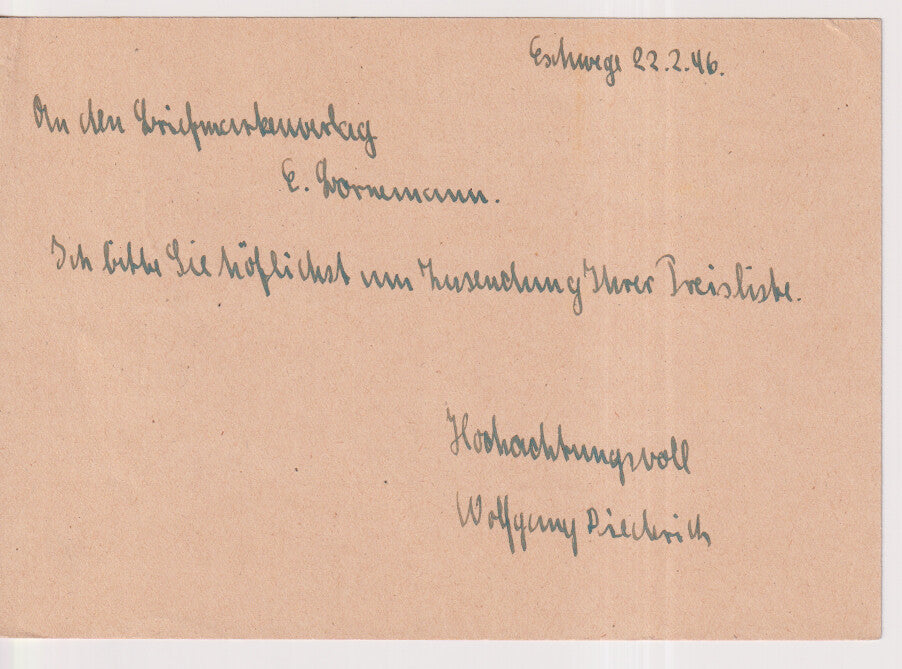 Eschwege 22.2.46.
An den Briefmarkenverlag
E. Bornemann.
Ich bitte Sie höflichst um Zusendung Ihrer Preisliste.
Hochachtungsvoll
Wolfgang Diederich